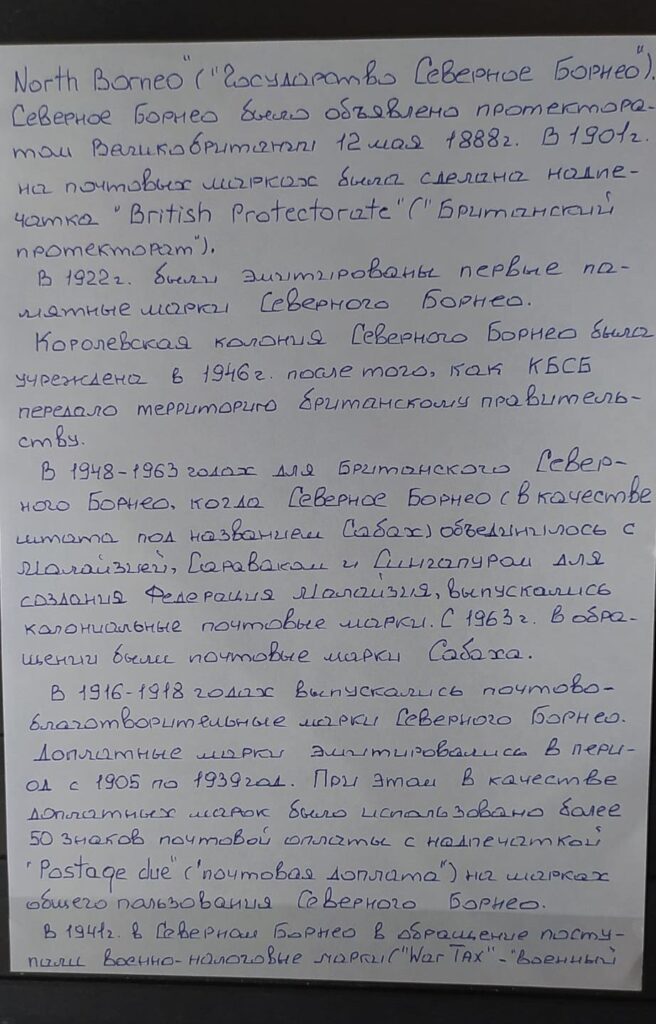 North Borneo" ("Государство Северное Борнео").
Северное Борнео было объявлено протектора-
том Великобритании 12 мая 1888г. В 1901г.
на почтовых марках была сделана надпе-
чатка "British Protectorate" ("Британский
протекторат").
В 1922г. были эмитированы первые па-
мятные марки Северного Борнео.
Королевская колония Северного Борнео была
учреждена в 1946г. после того, как КБСБ
передало территорию британскому правитель-
ству.
В 1948-1963 годах для Британского Север-
ного Борнео, когда Северное Борнео (в качестве
штата под названием Сабах) объединилось с
Малайзией, Сараваком и Сингапуром для
создания Федерация Малайзия, выпускались
колониальные почтовые марки. С 1963г. в обра-
щении были почтовые марки Сабаха.
В 1916-1918 годах выпускались почтово-
благотворительные марки Северного Борнео.
Доплатные марки эмитировались в пери-
од с 1905 по 1939 год. При этом в качестве
доплатных марок было использовано более
50 знаков почтовой оплаты с надпечаткой
"Postage due" ("почтовая доплата") на марках
общего пользования Северного Борнео.
В 1941г. в Северном Борнео в обращение посту-
пали военно-налоговые марки ("War Tax" - "военный